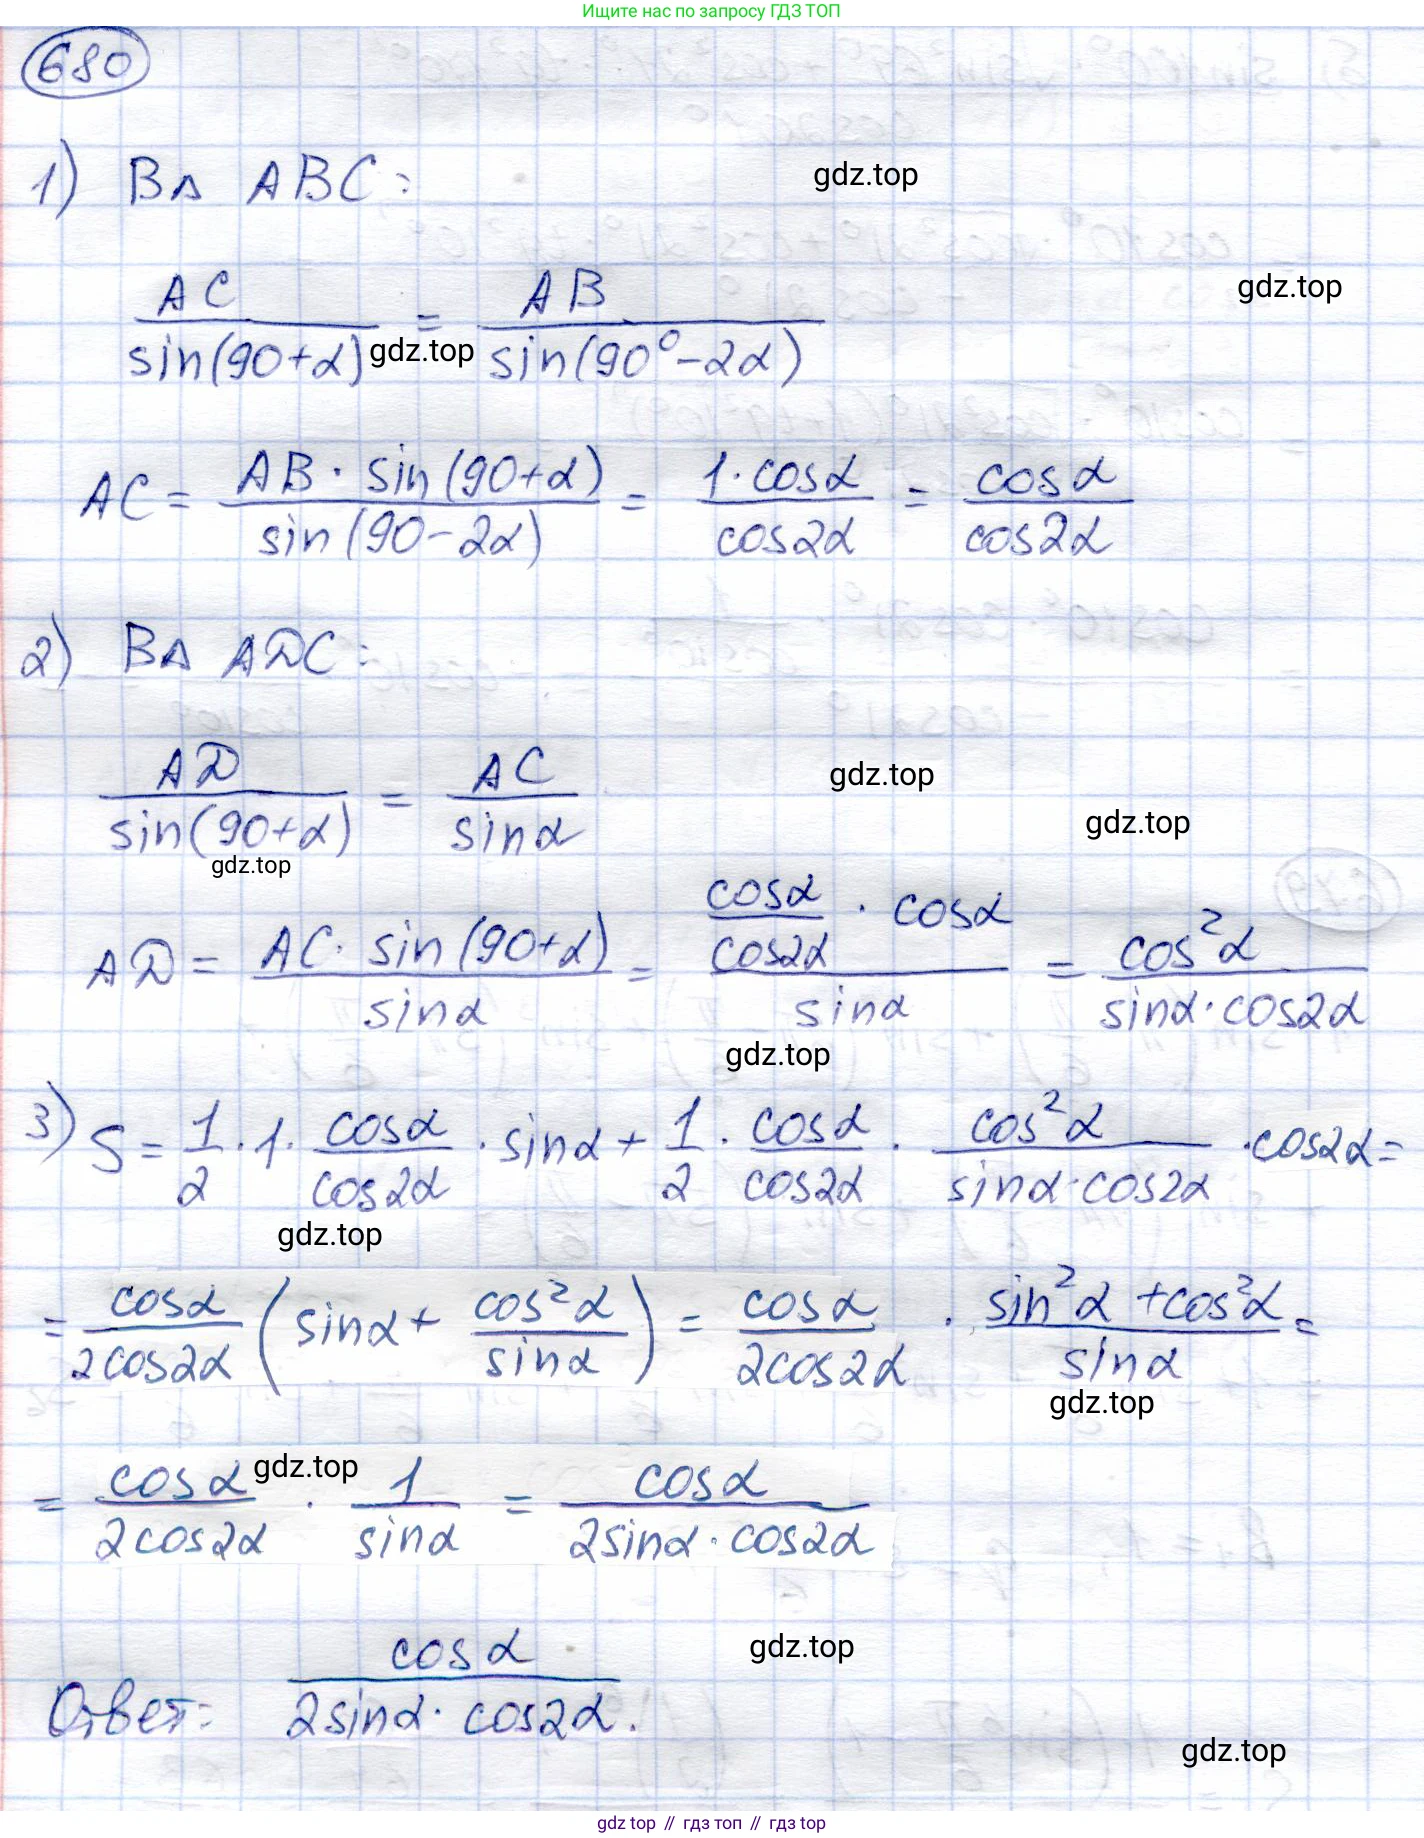 Ищите нас по запросу ГДЗ ТОП
680
1) В Δ ABC:
gdz.top
AC / sin(90+α) = AB / sin(90°-2α)
gdz.top
gdz.top
AC = AB · sin(90+α) / sin(90-2α) = 1·cosα / cos2α = cosα / cos2α
2) В Δ ADC:
AD / sin(90+α) = AC / sinα
gdz.top
gdz.top
gdz.top
AD = AC · sin(90+α) / sinα = cosα / cos2α · cosα / sinα = cos²α / sinα·cos2α
gdz.top
3) S = 1/2 · 1 · cosα / cos2α · sinα + 1/2 · cosα / cos2α · cos²α / sinα·cos2α · cos2α =
gdz.top
= cosα / 2cos2α (sinα + cos²α / sinα) = cosα / 2cos2α · sin²α + cos²α / sinα =
gdz.top
= cosα / 2cos2α · 1 / sinα = cosα / 2sinα · cos2α
gdz.top
Ответ: cosα / 2sinα · cos2α.
gdz.top
gdz.top
gdz top // гдз топ // gdz top